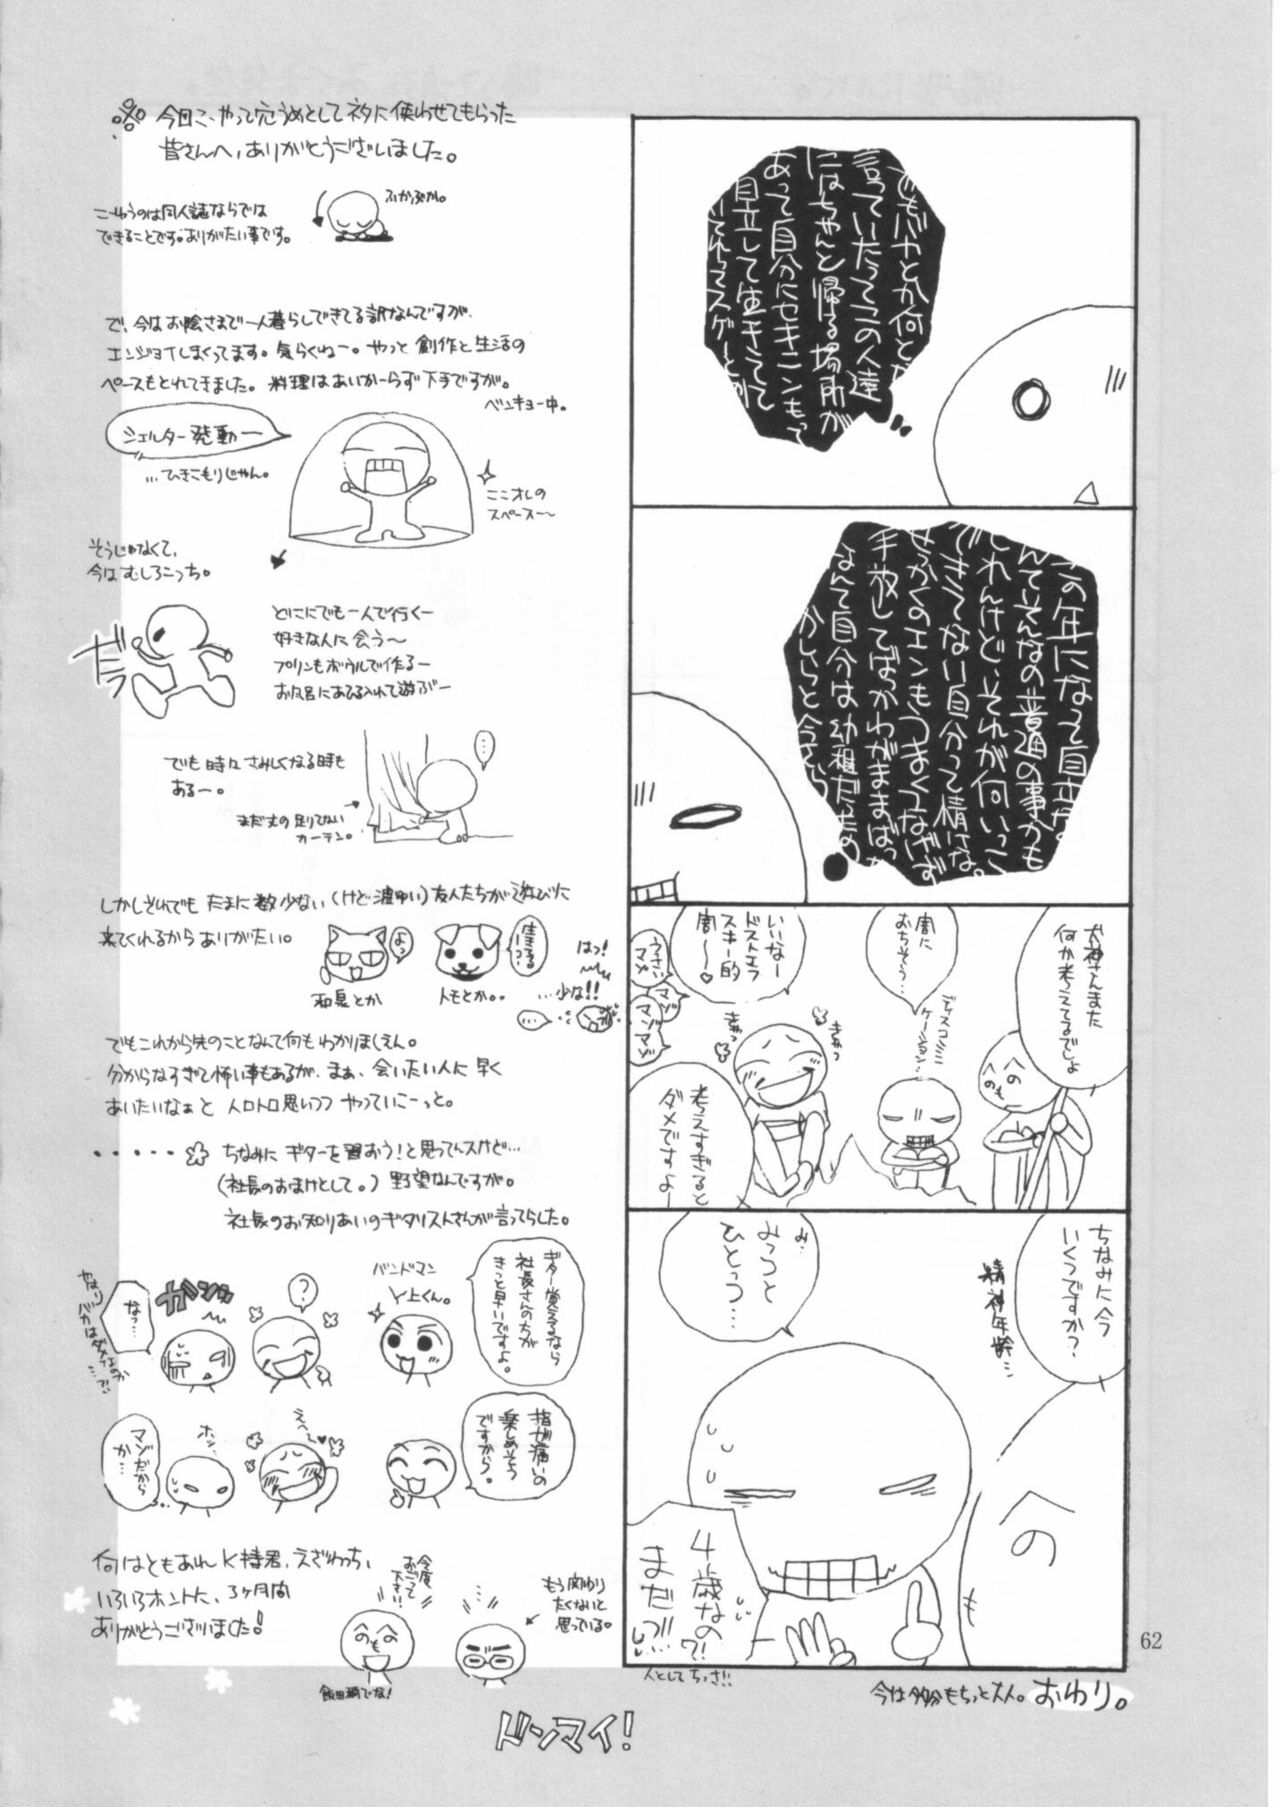 でもバヤとか何とか
言っていたってこの人達
にはちゃんと帰る場所が
あって自分にセキニンもって
自立して生きてて
それってスゲーとか
この年になって自立な
んていてんなの普通の事かも
しれんけど、それが何いっこ
できてない自分って情けな。
せっかくのエンもうまくつなげず
手放してばかわがままばっか
なんて自分は幼稚だもの
かしらと今さら
犬神さんまた
何か考えてるでしょ
闇に
おちそう…
ディスコミニ
ケーション…
いいなー
ドストエフ
スキー的
闇〜〜♥
うさい
マメ
マゾ
マゾ
マゾ
きゅっ
きゅっ
考えすぎると
ダメですよー
へのへのも
ちなみに今
いくつですか?
精神年齢…
み…
みっつと
ひとっつ…
4歳なの
?!
まだっ!!!
人としてちっさ!!
今は多分もちっと大人。おわり。
62
今回こ、やって穴うめとしてネタに使わせてもらった
皆さんへ、ありがとうございました。
ふかぶか。
こーゆうのは同人誌ならでは
できることです。ありがたい事です。
で、今はお陰さまで一人暮らしできてる訳なんですが、
エンジョイしまくってます。気らくねー。やっと創作と生活の
ペースもとれてきました。料理はあいかーらず下手ですが。
ベンキョー中。
シェルター発動ー
…ひきこもりじゃん。
ここオレの
スペース〜
そうじゃなくて、
今はむしろこっち。
だだっ
どこにでも一人で行くー
好きな人に会う〜
プリンもボウルで作るー
お風呂にあひる入れて遊ぶー
でも時々さみしくなる時も
あるー。
…
まだ丈の足りてない
カーテン。
しかしそれでもたまに数少ない(けど濃ゆい)友人たちが遊びに
来てくれるからありがたい。
よっ
生きてるーっ?
和泉とか
トモとか。。
はっ!
…少な!!
…
でもこれから先のことなんて何もわかりましえん。
分からなすぎて怖い事もあるが、まぁ、会いたい人に早く
あいたいなぁと 人ロトロ思いつつ やっていこーっと。
・・・・・ ちなみに ギターを習おう!と思ってんスけど…
(社長のおまけとして。)野望なんですが。
社長のお知りあいのギタリストさんが言ってらした。
ギター覚えるなら
社長さんの方が
きっと早いですよ。
バンドマン
Y上くん。
?
ガシュッ
なっ…
やはり
バカはダメなのか
…?!
指が痛いの
楽しめそう
ですから。
えへ〜♥
ホッ…
マゾだから
か…
何はともあれK持君、えざわっち、
いろいろホントに、3ヶ月間
ありがとうございました!
今度
おごって
下さい!!
へのへのも
飯田橋でな!
もう関わり
たくないと
思っている。
ドンマイ!